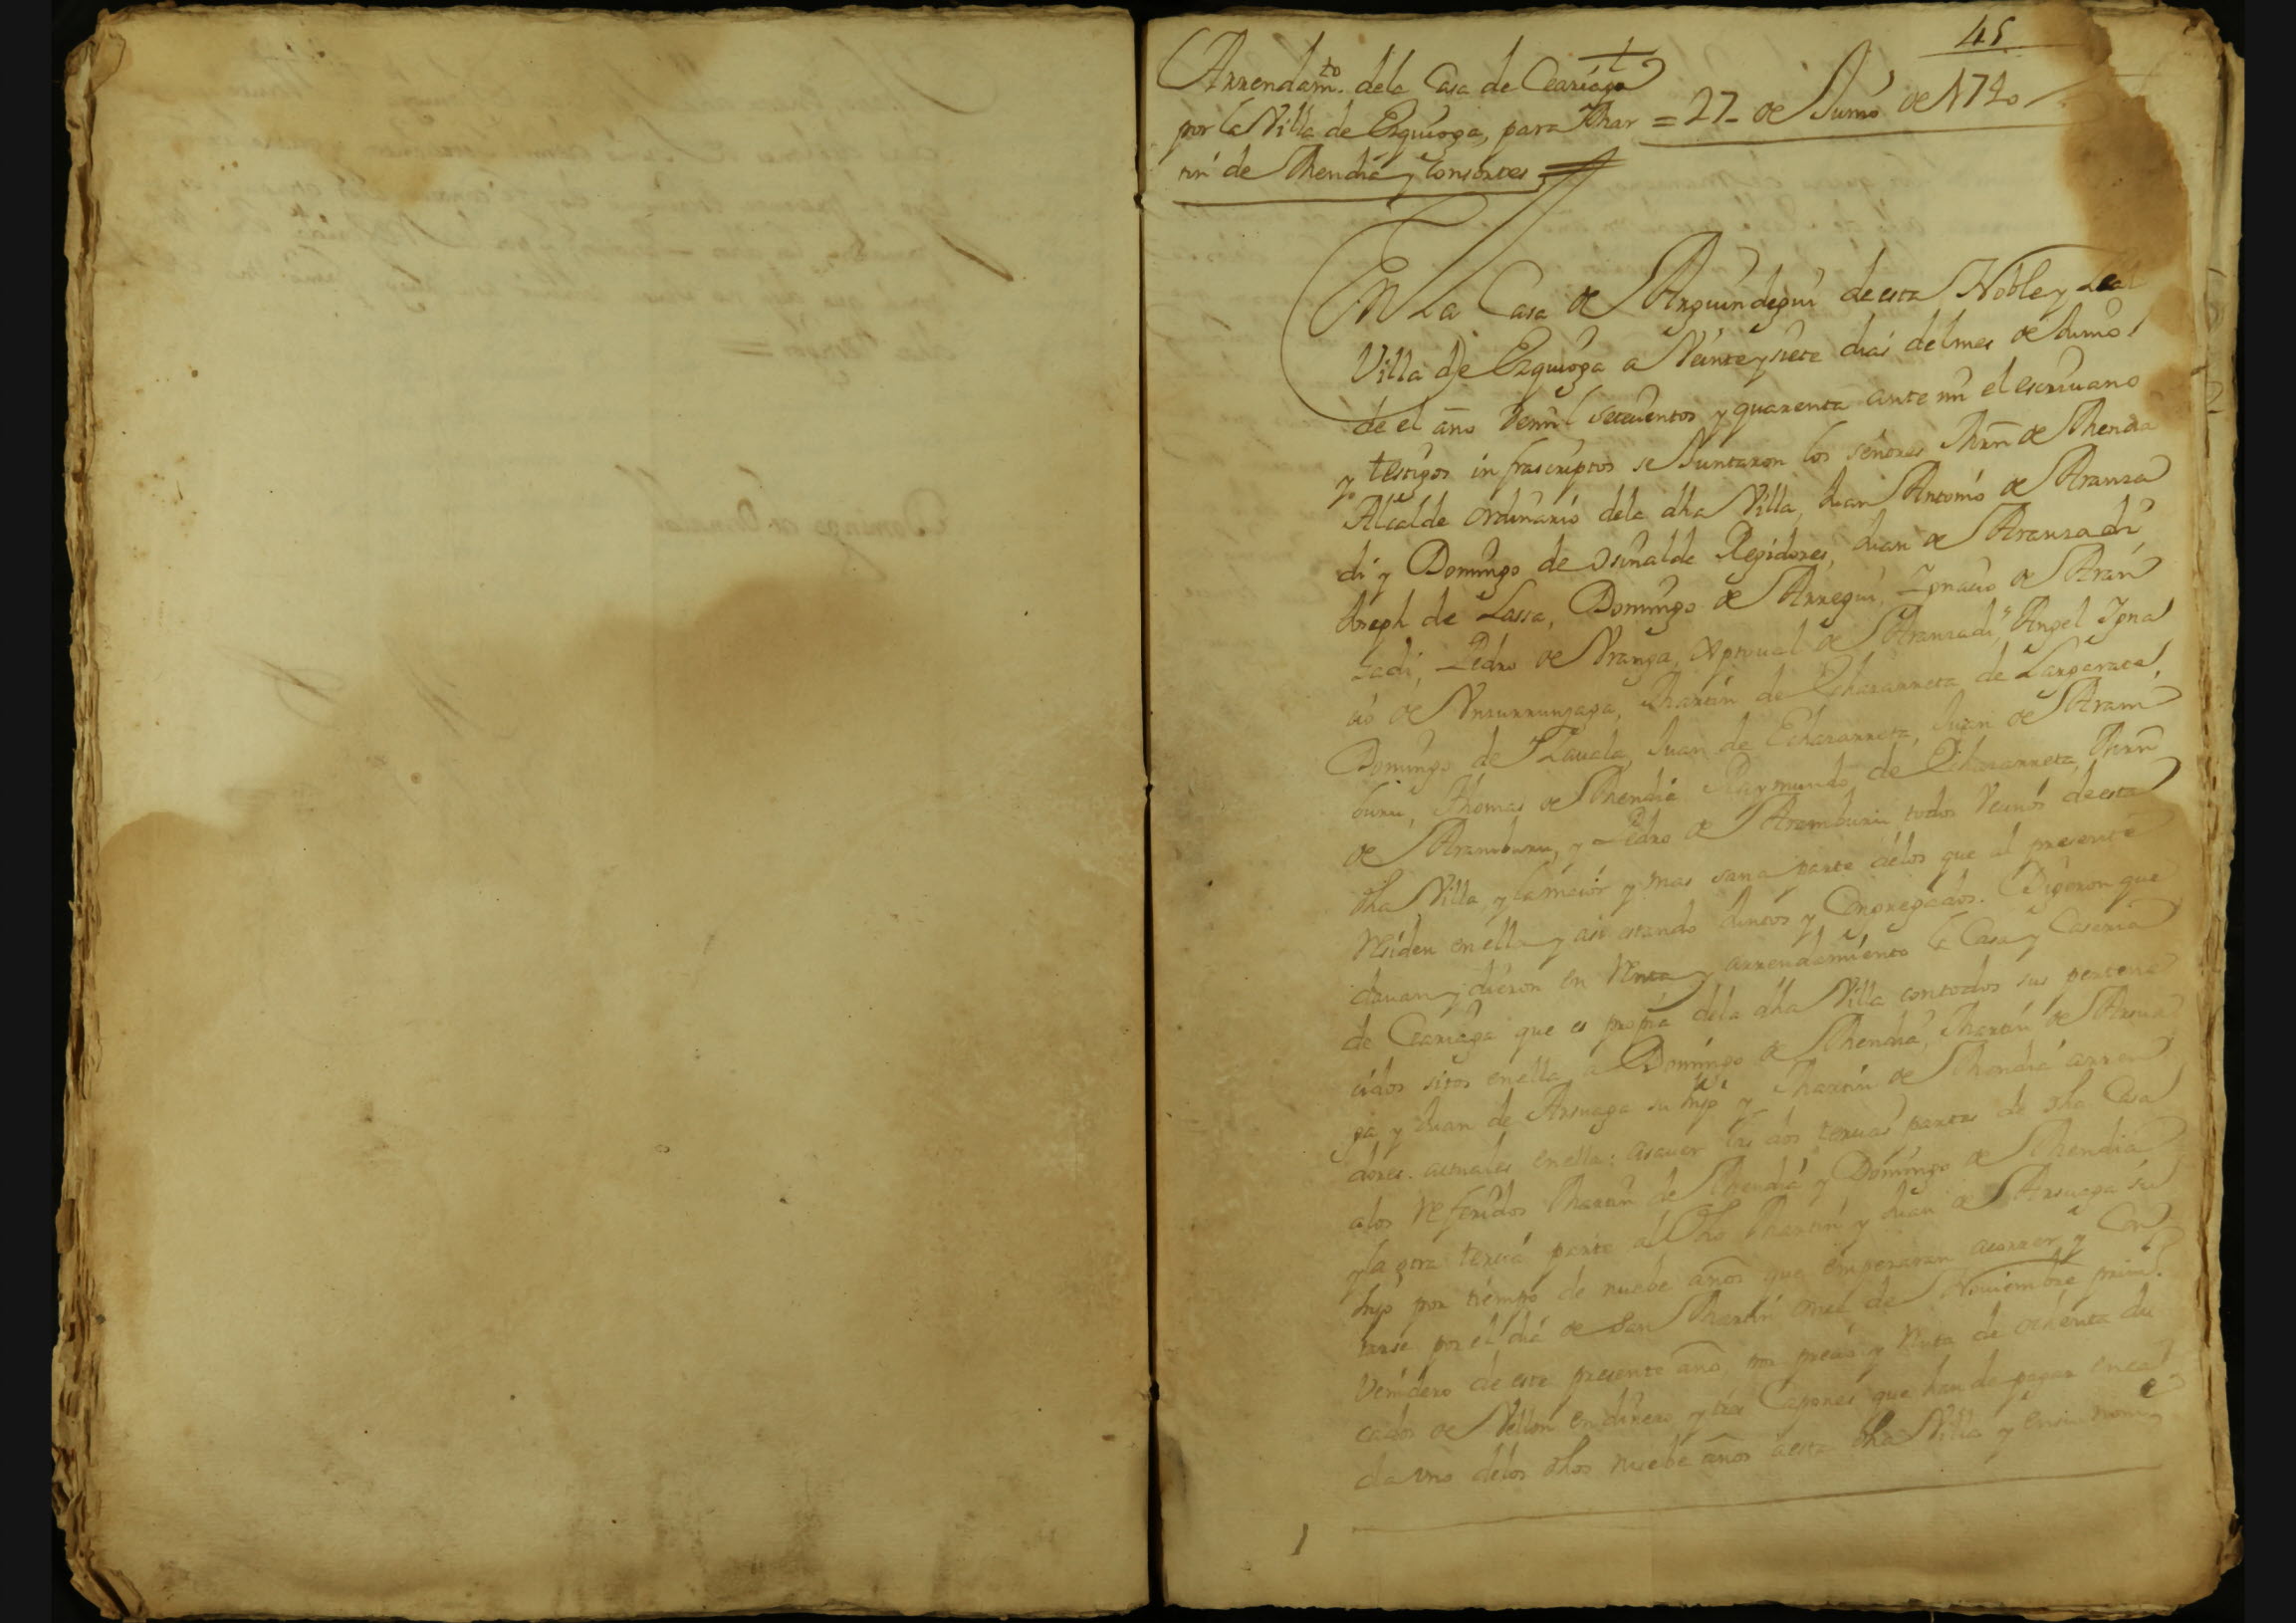 45
Arrendam.to dela Casa de Ceariaga
por la Villa de Ezquioga, para Mar = 27 - de Junio de 1740
tin de Mendia y Consortes =
En La Casa de Anguindegui de esta Noble y Leal
Villa de Ezquioga a Veinte y siete dias del mes de Junio
de el año demil setecientos y quarenta ante mi el escriuano
y testigos infrascriptos se Juntaron los señores Mrn de Mendia
Alcalde ordinario dela dha Villa, Juan Antonio de Aranza
di y Domingo de Osinalde Regidores, Juan de Aranzadi,
Joseph de Lassa, Domingo de Arregui, Ignacio de Aran
zadi, Pedro de Vranga, de Aranzadi, Angel Igna
cio de Insurrunzaga, Martin de Echararreta de Langarate,
Domingo de Zauala, Juan de Echararreta, Juan de Aram
buru, Thomas de Mendia Raymundo de Echararreta, Mrn
de Aramburu, y Pedro de Aramburu, todos Vecinos de esta
dha Villa, y la maior y mas sana parte delos que al presente
residen en ella y asi estando Juntos y Congregados. Digeron que
dauan y dieron en renta y arrendamiento la Casa y Caseria
de Ceariaga que es propia dela dha Villa con todos sus pertene
cidos sitos en ella, a Domingo de Mendia, Martin de Arsua
ga y Juan de Arsuaga su hijo y Martin de Mendia arren
dores actuales en ella: asauer las dos tercias partes de dha Casa
alos referidos Martin de Mendia y Domingo de Mendia
y la otra tercia parte al dho Martin y Juan de Arsuaga su
hijo por tiempo de nuebe años que empezaran acorrer y Con
tarse por el dia de San Martin onze de Noviembre prim.
Venidero de este presente año, por precio y renta de ochenta du
cados de Vellon en dinero, y tres Capones que han de pagar en ca
da vno delos dhos nuebe años a esta dha Villa y en su nom